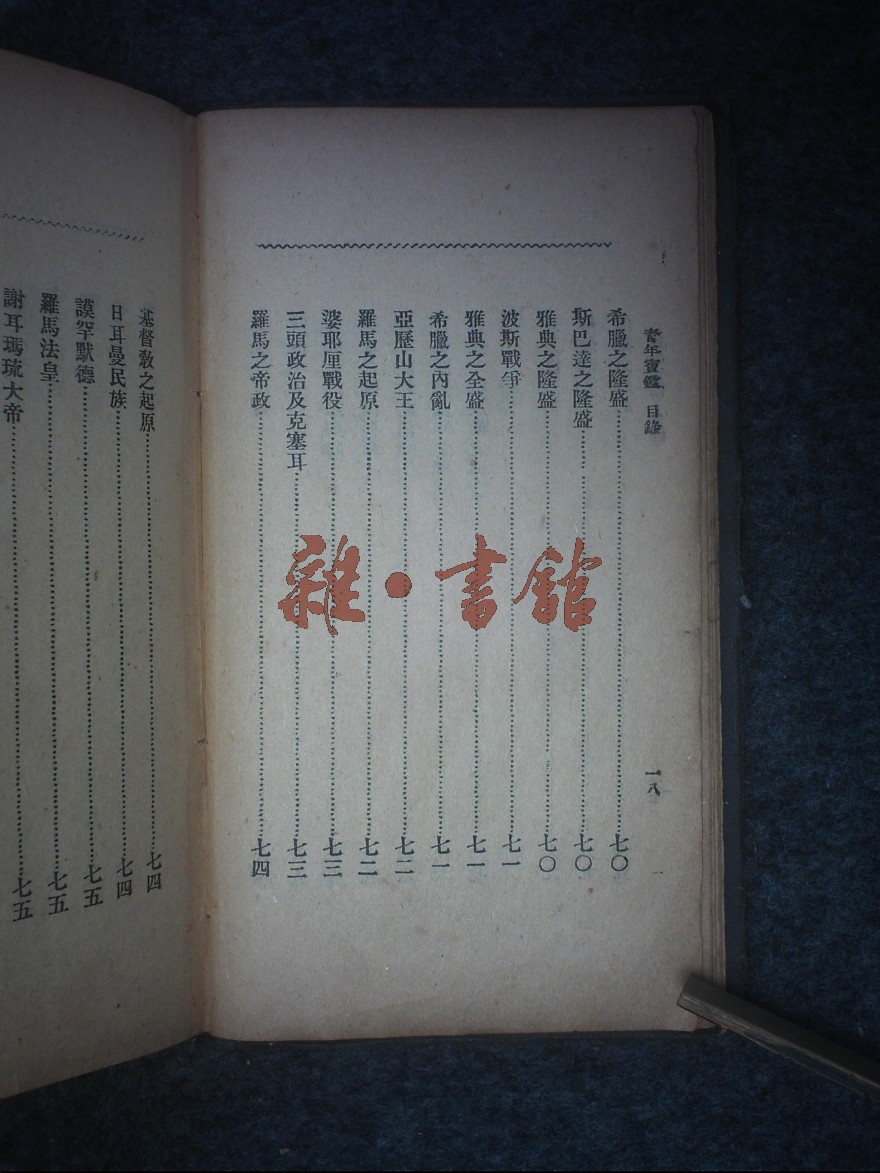 青年寶鑑 目錄 一八
希臘之隆盛 七〇
斯巴達之隆盛 七〇
雅典之隆盛 七〇
波斯戰爭 七一
雅典之全盛 七一
希臘之內亂 七一
亞歷山大王 七二
羅馬之起原 七二
婆耶厘戰役 七三
三頭政治及克塞耳 七三
羅馬之帝政 七四
基督敎之起原 七四
日耳曼民族 七四
謨罕默德 七五
羅馬法皇 七五
謝耳瑪琉大帝 七五
雜·書館